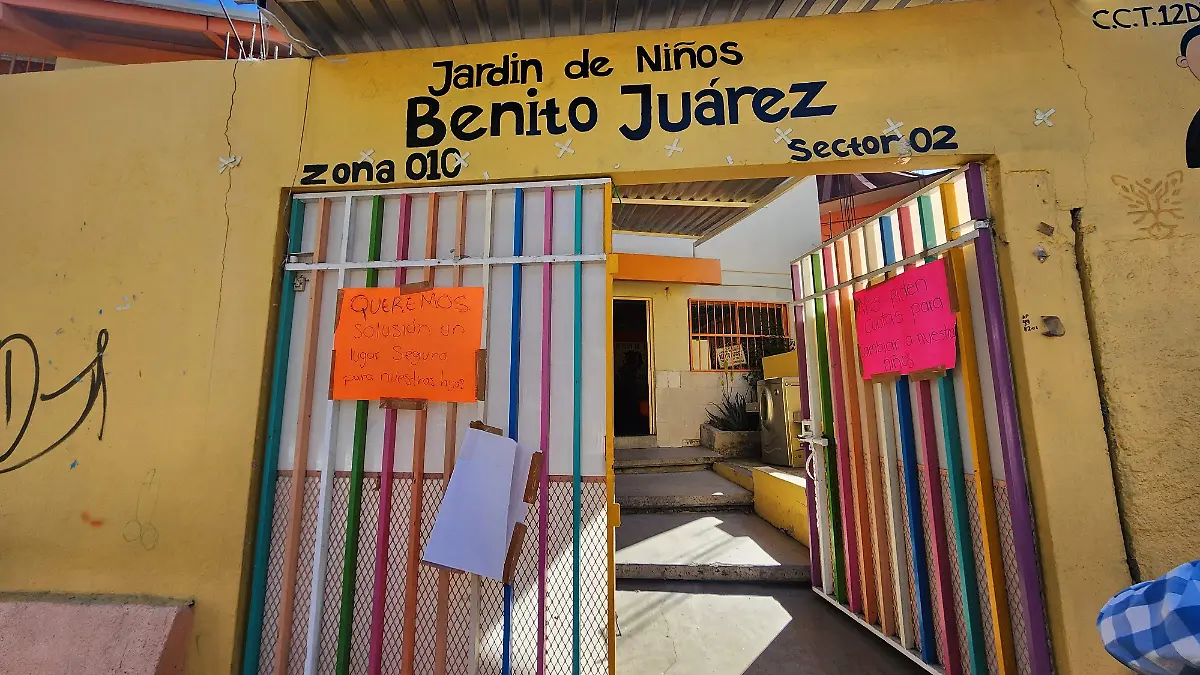 C.C.T.12D
Jardin de Niños
Benito Juárez
Zona 010
Sector 02
QUEREMOS
Solusión un
lugar Seguro
para nuestros hijos
Nos Piden
Cuotas para
cambiar a nuestros
niños